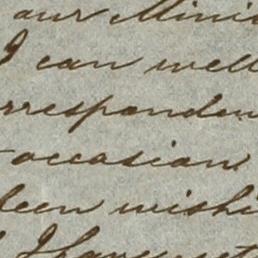 our Minis
I can well
rresponden
occasion
been wishi
I have